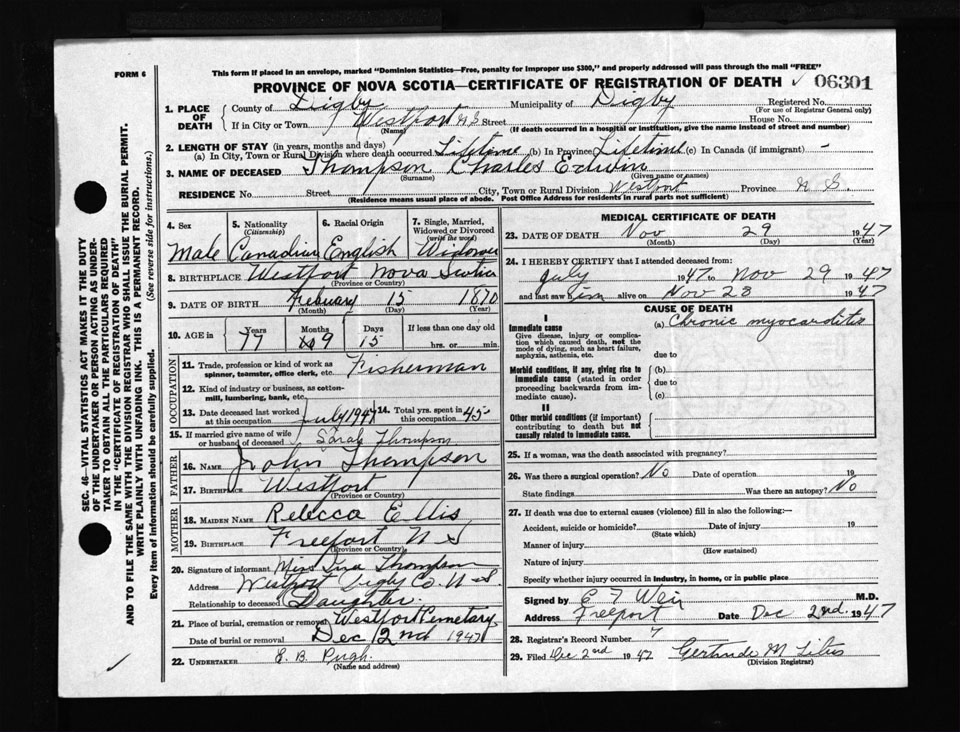 FORM 6
This form if placed in an envelope, marked "Dominion Statistics—Free, penalty for improper use $300," and properly addressed will pass through the mail "FREE"
PROVINCE OF NOVA SCOTIA—CERTIFICATE OF REGISTRATION OF DEATH 06301
1. PLACE OF DEATH
County of Digby Municipality of Digby Registered No.
(For use of Registrar General only)
If in City or Town Westport N S Street House No.
(Name) (If death occurred in a hospital or institution, give the name instead of street and number)
2. LENGTH OF STAY (in years, months and days)
(a) In City, Town or Rural Division where death occurred. Lifetime (b) In Province Lifetime (c) In Canada (if immigrant) -
3. NAME OF DECEASED Thompson Charles Edwin
(Surname) (Given name or names)
RESIDENCE No. Street City, Town or Rural Division Westport Province N S.
(Residence means usual place of abode. Post Office Address for residents in rural parts not sufficient)
4. Sex Male
5. Nationality (Citizenship) Canadian
6. Racial Origin English
7. Single, Married, Widowed or Divorced (write the word) Widower
8. BIRTHPLACE Westport Nova Scotia
(Province or Country)
9. DATE OF BIRTH February 15 1870
(Month) (Day) (Year)
10. AGE in Years 77 Months 9 Days 15 If less than one day old hrs. or min.
OCCUPATION
11. Trade, profession or kind of work as spinner, teamster, office clerk, etc. Fisherman
12. Kind of industry or business, as cotton-mill, lumbering, bank, etc.
13. Date deceased last worked at this occupation July 1947
14. Total yrs. spent in this occupation 45
15. If married give name of wife or husband of deceased Sarah Thompson
FATHER
16. NAME John Thompson
17. BIRTHPLACE Westport
(Province or Country)
MOTHER
18. MAIDEN NAME Rebecca Ellis
19. BIRTHPLACE Freeport N S
(Province or Country)
20. Signature of informant Miss Thompson
Address Westport Digby Co. N.S.
Relationship to deceased Daughter.
21. Place of burial, cremation or removal Westport Cemetary
Date of burial or removal Dec 2nd 1947
22. UNDERTAKER E. B. Pugh.
(Name and address)
MEDICAL CERTIFICATE OF DEATH
23. DATE OF DEATH Nov 29 1947
(Month) (Day) (Year)
24. I HEREBY CERTIFY that I attended deceased from:
July 1947 to Nov 29 1947
and last saw him alive on Nov 28 1947
CAUSE OF DEATH
I
Immediate cause
Give disease, injury or complication which caused death, not the mode of dying, such as heart failure, asphyxia, asthenia, etc.
(a) Chronic myocarditis
due to
Morbid conditions, if any, giving rise to immediate cause (stated in order proceeding backwards from immediate cause).
(b)
due to
(c)
II
Other morbid conditions (if important) contributing to death but not causally related to immediate cause.
25. If a woman, was the death associated with pregnancy?
26. Was there a surgical operation? No Date of operation 19
State findings Was there an autopsy? No
27. If death was due to external causes (violence) fill in also the following:—
Accident, suicide or homicide? Date of injury 19
(State which)
Manner of injury
(How sustained)
Nature of injury
Specify whether injury occurred in industry, in home, or in public place
Signed by E F Weir M.D.
Address Freeport Date Dec 2nd. 1947
28. Registrar's Record Number 7
29. Filed Dec 2nd 1947 Gertrude M
(Division Registrar)
SEC. 46—VITAL STATISTICS ACT MAKES IT THE DUTY
OF THE UNDERTAKER OR PERSON ACTING AS UNDER-
TAKER TO OBTAIN ALL THE PARTICULARS REQUIRED
IN THE "CERTIFICATE OF REGISTRATION OF DEATH"
AND TO FILE THE SAME WITH THE DIVISION REGISTRAR WHO SHALL ISSUE THE BURIAL PERMIT.
WRITE PLAINLY WITH UNFADING INK. THIS IS A PERMANENT RECORD.
Every item of information should be carefully supplied. (See reverse side for instructions.)